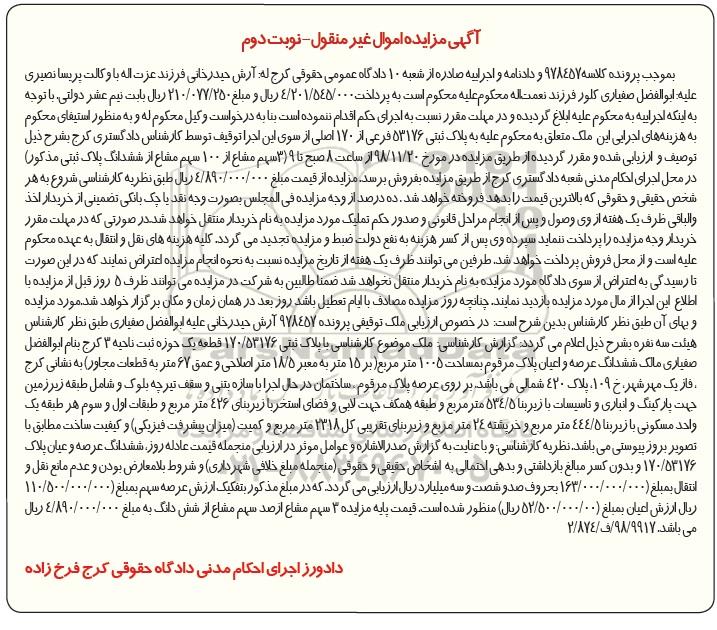 آگهی مزایده اموال غیر منقول – نوبت دوم
بموجب پرونده کلاسه ۹۷۸۴۵۷ و دادنامه و اجراییه صادره از شعبه ۱۰ دادگاه عمومی حقوقی کرج له: آرش حیدرخانی فرزند عزت اله با وکالت پریسا نصیری
علیه: ابوالفضل صفیاری کلور فرزند نعمت‌اله محکوم‌علیه محکوم است به پرداخت ۴/۲۰۱/۵۴۵/۰۰۰ ریال و مبلغ ۲۱۰/۰۷۷/۲۵۰ ریال بابت نیم عشر دولتی. با توجه
به اینکه اجراییه به محکوم علیه ابلاغ گردیده و در مهلت مقرر نسبت به اجرای حکم اقدام ننموده است بنا به درخواست وکیل محکوم له و به منظور استیفای محکوم
به هزینه‌های اجرایی این ملک متعلق به محکوم علیه به پلاک ثبتی ۵۳۱۷۶ فرعی از ۱۷۰ اصلی از سوی این اجرا توقیف توسط کارشناس دادگستری کرج بشرح ذیل
توصیف و ارزیابی شده و مقرر گردیده از طریق مزایده در مورخ ۹۸/۱۱/۲۰ از ساعت ۸ صبح تا ۹ (۳سهم مشاع از ۱۰۰ سهم مشاع از ششدانگ پلاک ثبتی مذکور)
در محل اجرای احکام مدنی شعبه دادگستری کرج از طریق مزایده بفروش برسد. مزایده از قیمت مبلغ ۴/۸۹۰/۰۰۰/۰۰۰ ریال طبق نظریه کارشناسی شروع به هر
شخص حقیقی و حقوقی که بالاترین قیمت را بدهد فروخته خواهد شد. ده درصد از وجه مزایده فی المجلس بصورت وجه نقد یا چک بانکی تضمینی از خریدار اخذ
والباقی ظرف یک هفته از وی وصول و پس از انجام مراحل قانونی و صدور حکم تملیک مورد مزایده به نام خریدار منتقل خواهد شد. در صورتی که در مهلت مقرر
خریدار وجه مزایده را پرداخت ننماید سپرده وی پس از کسر هزینه به نفع دولت ضبط و مزایده تجدید می گردد. کلیه هزینه های نقل و انتقال به عهده محکوم
علیه است و از محل فروش پرداخت خواهد شد. طرفین می توانند ظرف یک هفته از تاریخ مزایده نسبت به نحوه انجام مزایده اعتراض نمایند که در این صورت
تا رسیدگی به اعتراض از سوی دادگاه مورد مزایده به نام خریدار منتقل نخواهد شد ضمنا طالبین به شرکت در مزایده می توانند ظرف ۵ روز قبل از مزایده با
اطلاع این اجرا از مال مورد مزایده بازدید نمایند. چنانچه روز مزایده مصادف با ایام تعطیل باشد روز بعد در همان زمان و مکان برگزار خواهد شد. مورد مزایده
و بهای آن طبق نظر کارشناس بدین شرح است: در خصوص ارزیابی ملک توقیفی پرونده ۹۷۸۴۵۷ آرش حیدرخانی علیه ابوالفضل صفیاری طبق نظر کارشناس
هیئت سه نفره بشرح ذیل اعلام می گردد: گزارش کارشناسی: ملک موضوع کارشناسی با پلاک ثبتی ۱۷۰/۵۳۱۷۶ قطعه یک حوزه ثبت ناحیه ۳ کرج بنام ابوالفضل
صفیاری مالک ششدانگ عرصه و اعیان پلاک مرقوم بمساحت ۱۰۰۵ متر مربع (بر ۱۵ متر به معبر ۱۸/۵ متر اصلاحی و عمق ۶۷ متر به قطعات مجاور) به نشانی کرج
، فاز یک مهرشهر، خ ۱۰۹، پلاک ۴۲۰ شمالی می باشد. بر روی عرصه پلاک مرقوم . ساختمان در حال اجرا با سازه بتنی و سقف تیرچه بلوک و شامل طبقه زیرزمین
جهت پارکینگ و انباری و تاسیسات با زیربنا ۵۳۴/۵ متر مربع و طبقه همکف جهت لابی و فضای استخر با زیربنای ۴۲۶ متر مربع و طبقات اول و سوم هر طبقه یک
واحد مسکونی با زیربنا ۴۴۴/۵ متر مربع و خرپشته ۲۴ متر مربع و زیربنای تقریبی کل ۲۳۱۸ متر مربع و کمیت (میزان پیشرفت فیزیکی) و کیفیت ساخت مطابق با
تصویر بروز پیوستی می باشد. نظریه کارشناسی: و با عنایت به گزارش صدرالاشاره و عوامل موثر در ارزیابی منجمله قیمت عادله روز، ششدانگ عرصه و عیان پلاک
۱۷۰/۵۳۱۷۶ و بدون کسر مبالغ بازداشتی و بدهی احتمالی به اشخاص حقیقی و حقوقی (منجمله مبلغ خلافی شهرداری) و شروط بلامعارض بودن و عدم مانع نقل و
انتقال بمبلغ (۱۶۳/۰۰۰/۰۰۰/۰۰۰ بحروف صدو شصت و سه میلیارد ریال ارزیابی می گردد. که در مبلغ مذکور بتفکیک ارزش عرصه سهم بمبلغ (۱۱۰/۵۰۰/۰۰۰/۰۰۰
ریال ارزش اعیان بمبلغ (۵۲/۵۰۰/۰۰۰/۰۰ ریال) منظور شده است. قیمت پایه مزایده ۳ سهم مشاع از صد سهم مشاع از شش دانگ به مبلغ ۴/۸۹۰/۰۰۰/۰۰۰ ریال
می باشد. ۹۸/۹۹۱۷/ف/۲/۸۷۴
دادورز اجرای احکام مدنی دادگاه حقوقی کرج فرخ زاده
ParsNamadData